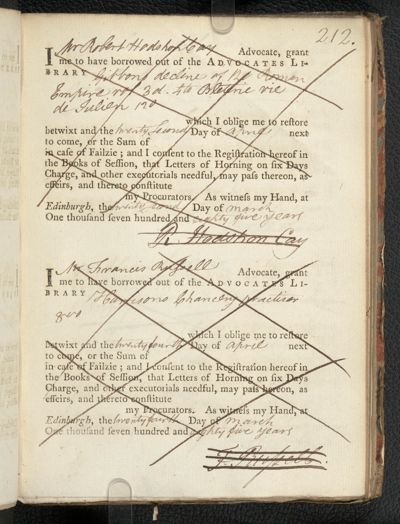 212.
I Mr Robert Hodshon Cay Advocate, grant
me to have borrowed out of the ADVOCATES LI-
BRARY Gibbons decline of the Roman
Empire vol 3d. 4to Bleterie vie
de Julien 12o
which I oblige me to reſtore
betwixt and the twenty second Day of april next
to come, or the Sum of
in caſe of Failzie; and I conſent to the Regiſtration hereof in
the Books of Seſſion, that Letters of Horning on ſix Days
Charge, and other executorials needful, may paſs thereon, as
effeirs, and thereto conſtitute
my Procurators. As witneſs my Hand, at
Edinburgh, the twenty second Day of march
One thouſand ſeven hundred and eighty five years
R. Hodshon Cay
I Mr Francis Russell Advocate, grant
me to have borrowed out of the ADVOCATES LI-
BRARY Harrisons Chancery practiser
8vo
which I oblige me to reſtore
betwixt and the twenty fourth Day of april next
to come, or the Sum of
in caſe of Failzie; and I conſent to the Regiſtration hereof in
the Books of Seſſion, that Letters of Horning on ſix Days
Charge, and other executorials needful, may paſs hereon, as
effeirs, and thereto conſtitute
my Procurators. As witneſs my Hand, at
Edinburgh, the twenty fourth Day of march
One thouſand ſeven hundred and eighty five years
F. Russell.